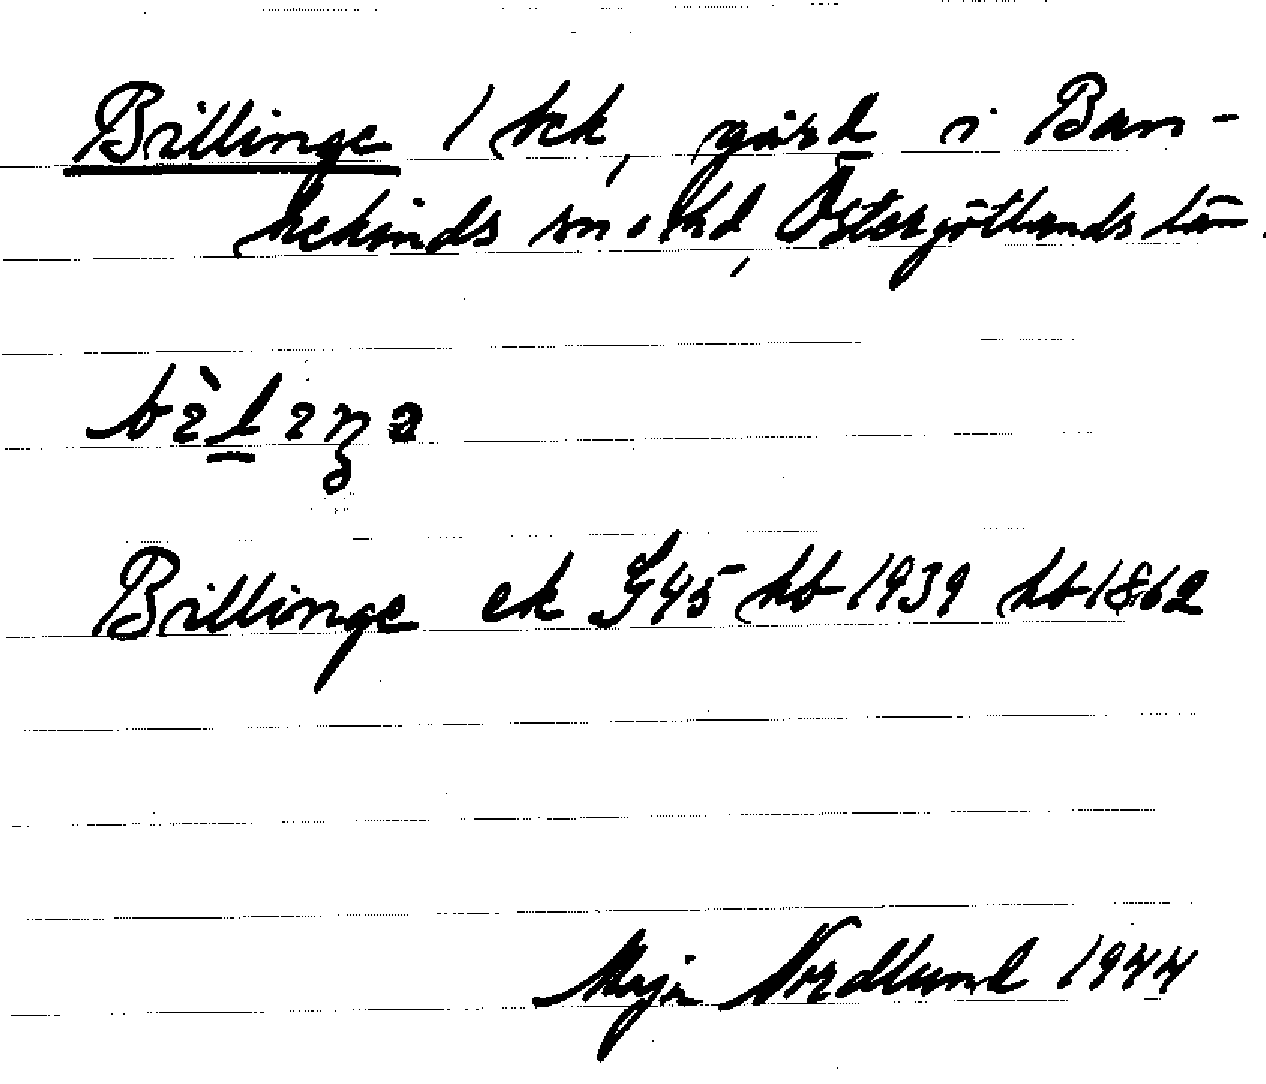 Billinge 1 hek, gård i Ban-
kekinds sn o. hd, Östergötlands län.
bìlıŋa
Billinge ek J 45 hb 1939 hb 1862
Maja Nordlund 1944